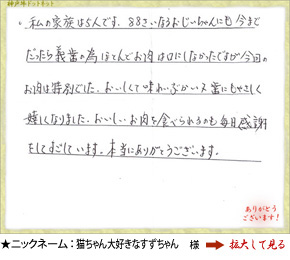 神戸牛ドットネット
・私の家族は5人です。88さいなるおじいちゃんにも今まで
だったら義歯の為ほとんどお肉は口にしなかったですが今回の
お肉は特別でした。おいしくて味わいぶかい又歯にもやさしく
嬉しくなりました。おいしいお肉を食べられるのも毎日感謝
をしてすごしています。本当にありがとうございます。
ありがとう
ございます!
★ニックネーム:猫ちゃん大好きなすずちゃん 様
拡大して見る